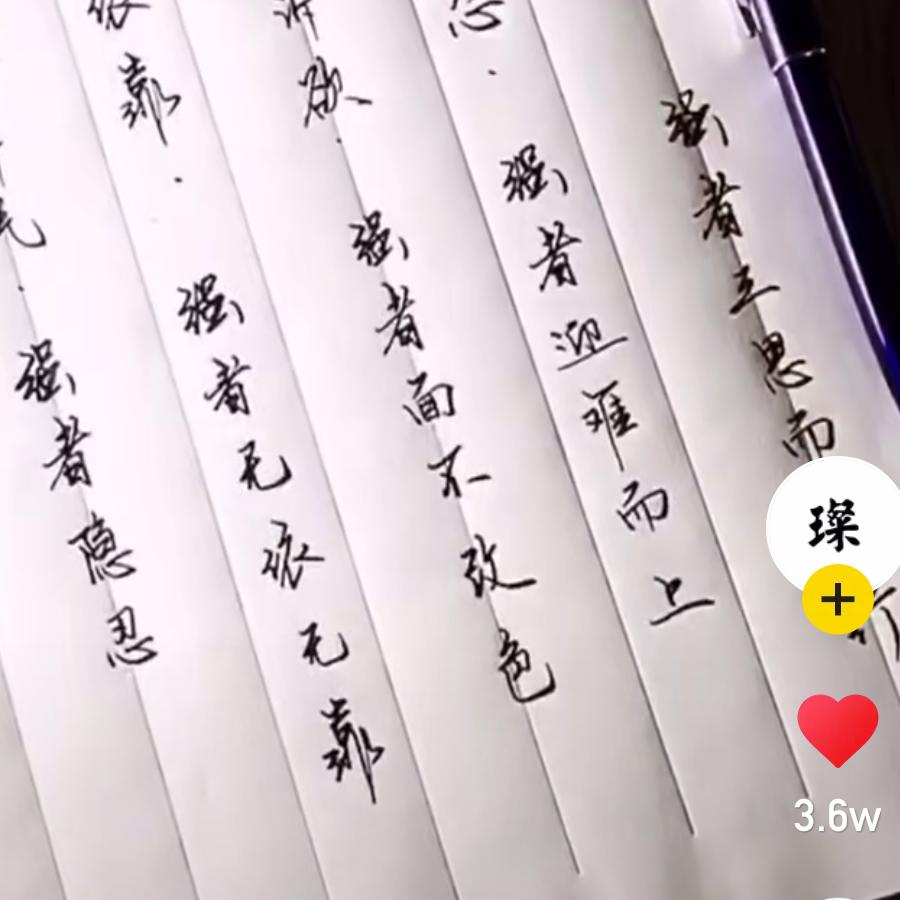 强者三思而行
忍.强者迎难而上
欲.强者面不改色
靠.强者无依无靠
强者隐忍
璨
3.6w